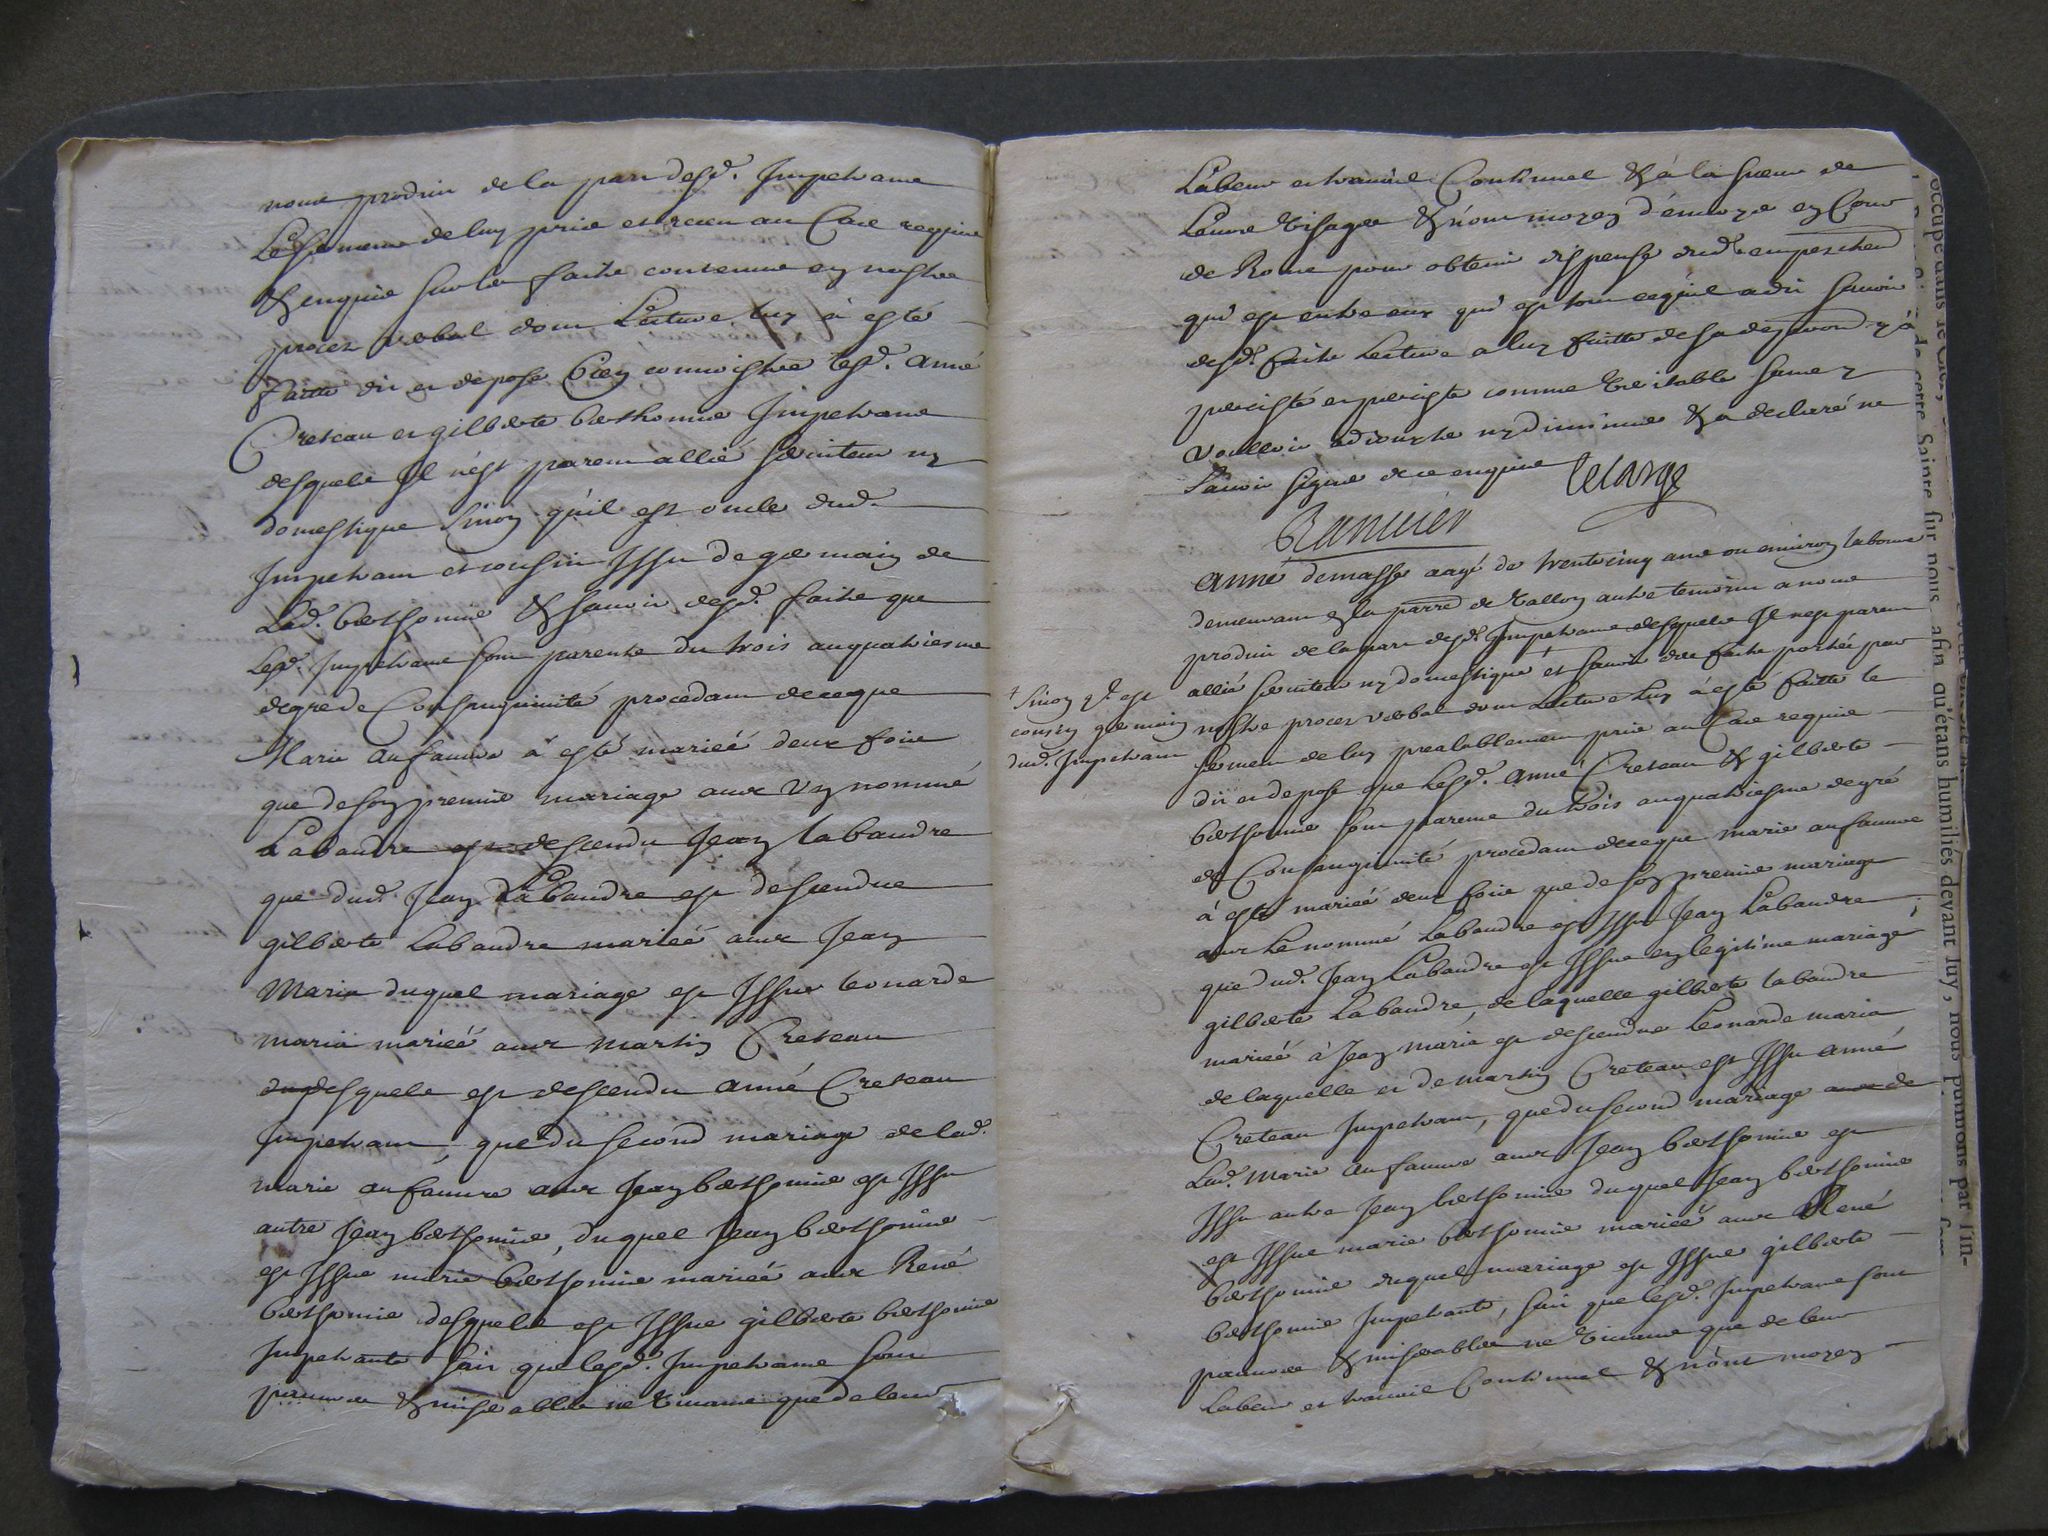 nous produit de la part desd. Impetrans
Le Serment de luy pris et receu au Cas requis
& enquis sur les faits contenus en nostre
procez verbal dont Lecture luy à esté
faitte dit et depose Bien connoistre lesd. Anné
Creteau et gilberte berthomie Impetrans
desquels Il n'est parent allié serviteur ny
domestique Sinon qu'il est oncle dud.
Impetrant et cousin Issu de germain de
Lad. berthomie & savoir desd. faits que
Lesd. Impetrans sont parents du trois au quatriesme
degre de Consanguinité procedant de ce que
Marie aufauvre à esté mariéé deux fois
que de son premier mariage avec un nommé
Labaudre est descendu Jean labaudre
que dud. Jean Labaudre est descendue
gilberte Labaudre mariéé avec Jean
Maria duquel mariage est Issue Leonarde
maria mariéé avec Martin Creteau
desquels est descendu anné Creteau
Impetrant, que du second mariage de lad.
marie aufauvre avec Jean berthomie est Issu
autre Jean berthomie, duquel Jean berthomie
est Issue marie berthomie mariéé avec René
berthomie desquels est Issue gilberte berthomie
Impetrante sait que lesd. Impetrans sont
pauvres & miserables ne vivans que de leur
Labeur et travail Continuel & à la sueur de
Leurs visages & n'ont moyen d'envoyer en Cour
de Rome pour obtenir dispense dud. empeschem.
qui est entre eux qui est tout ce qu'il a dit savoir
desd. faits Lecture a luy faitte de sa deposition y à
persisté et persiste comme veritable sans y
voulloir adjouster ny diminuer & a declaré ne
Savoir signer de ce enquis Lelarge
Ranvier
Anné demasse aagé de trente cinq ans ou environ laboureur
demeurant en la parr. de vallon autre temoin a nous
produit de la part desd. Impetrans desquels Il n'est parent
allié serviteur ny domestique et savoir des faits portés par
+ Sinon q.l est
cousin germain
dud. Impetrant
nostre procez verbal dont Lecture Luy à esté faitte le
serment de luy prealablement pris au Cas requis
dit et depose que Lesd. anné Creteau & gilberte
berthomie sont parents du trois au quatriesme degré
de Consanguinité procedant de ce que marie aufauvre
à esté mariéé deux fois que de son premier mariage
avec Le nommé Labaudre est Issu Jean Labaudre
que dud. Jean Labaudre est Issue en legitime mariage
gilberte Labaudre, de laquelle gilberte labaudre
mariéé à Jean maria est descendue Leonarde maria
de laquelle et de martin Creteau est Issu anné
Creteau Impetrant, que du second mariage de
Lad. Marie aufauvre avec Jean berthomie est
Issu autre Jean berthomie duquel Jean berthomie
est Issue marie berthomie mariéé avec René
berthomie duquel mariage est Issue gilberte
berthomie Impetrante, sait que lesd. Impetrans sont
pauvres & miserables ne vivans que de leur
Labeur et travail Continuel & n'ont moyen
occupé dans le
de cette Sainte sur nous, afin qu'étans humiliés devant luy, nous puissions par l'in-